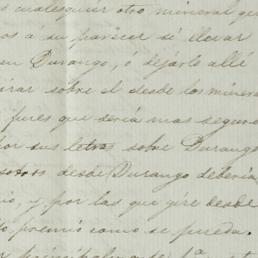 cualesquier otro mineral que
os á su parecer sí llevar
en Durango, ó dejarlo allí
irar sobre el desde los mineral
pues que sería mas seguro
por sus letras sobre Durango
sotros desde Durango debería
io, y por las que gire desde
to premio como se pueda.